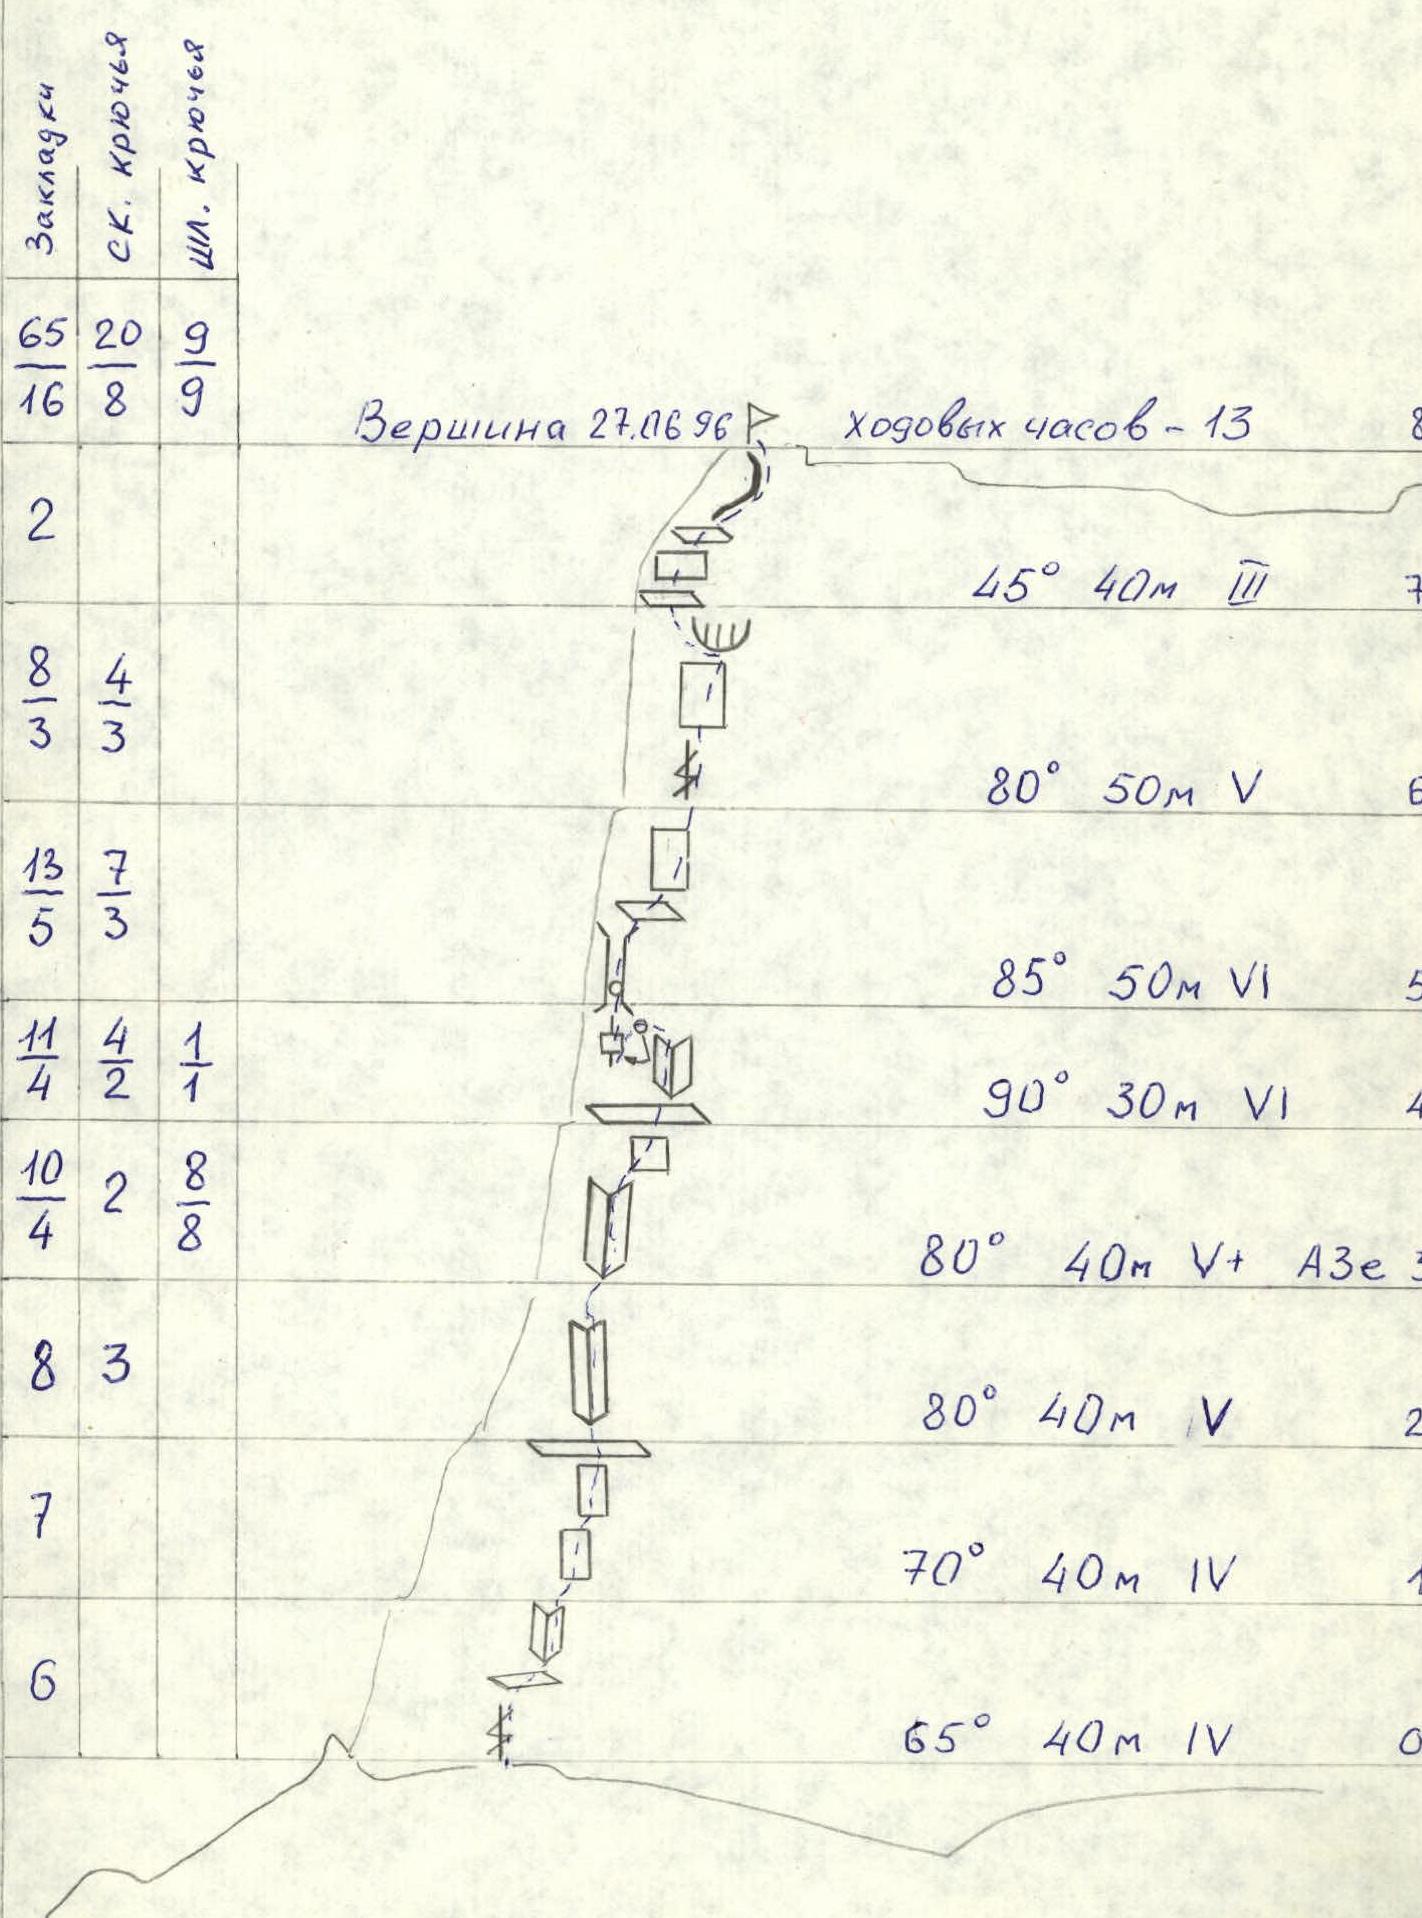 Закладки ск. крючья шл. крючья
65/16 20/8 9/9
Вершина 27.06 96 ходовых часов - 13 8
2
45° 40м III 7
8/3 4/3
80° 50м V 6
13/5 7/3
85° 50м VI 5
11/4 4/2 1/1
90° 30м VI 4
10/4 2 8/8
80° 40м V+ А3е 3
8 3
80° 40м V 2
7
70° 40м IV 1
6
65° 40м IV 0